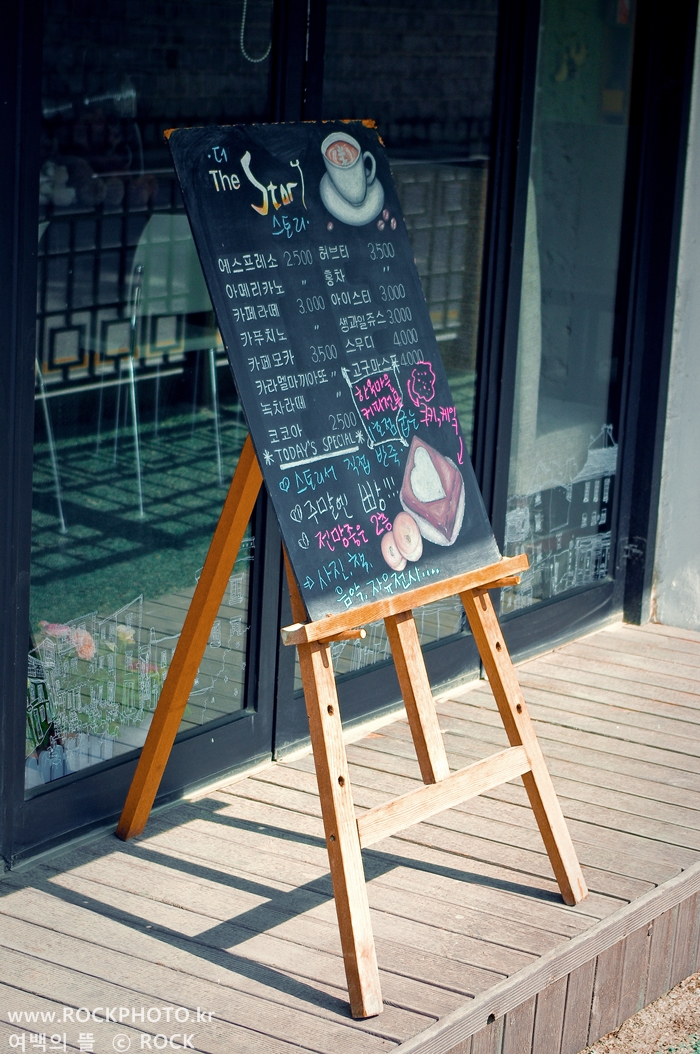 ·더
The Story
스토리·
에스프레소 2.500
아메리카노 〃
카페라떼 3.000
카푸치노 〃
카페모카 3.500
카라멜마끼아또 〃
녹차라떼 〃
코코아 2.500
허브티 3.500
홍차 〃
아이스티 3.000
생과일쥬스 3.000
스무디 4.000
4.000
한옥마을
쿠키, 케익
*TODAY'S SPECIAL*
스토리서 직접 반죽
주말엔 빵!!!
전망좋은 2층
사진, 책,
음악, 자유전시....
www.ROCKPHOTO.kr
여백의 뜰 ⓒ ROCK